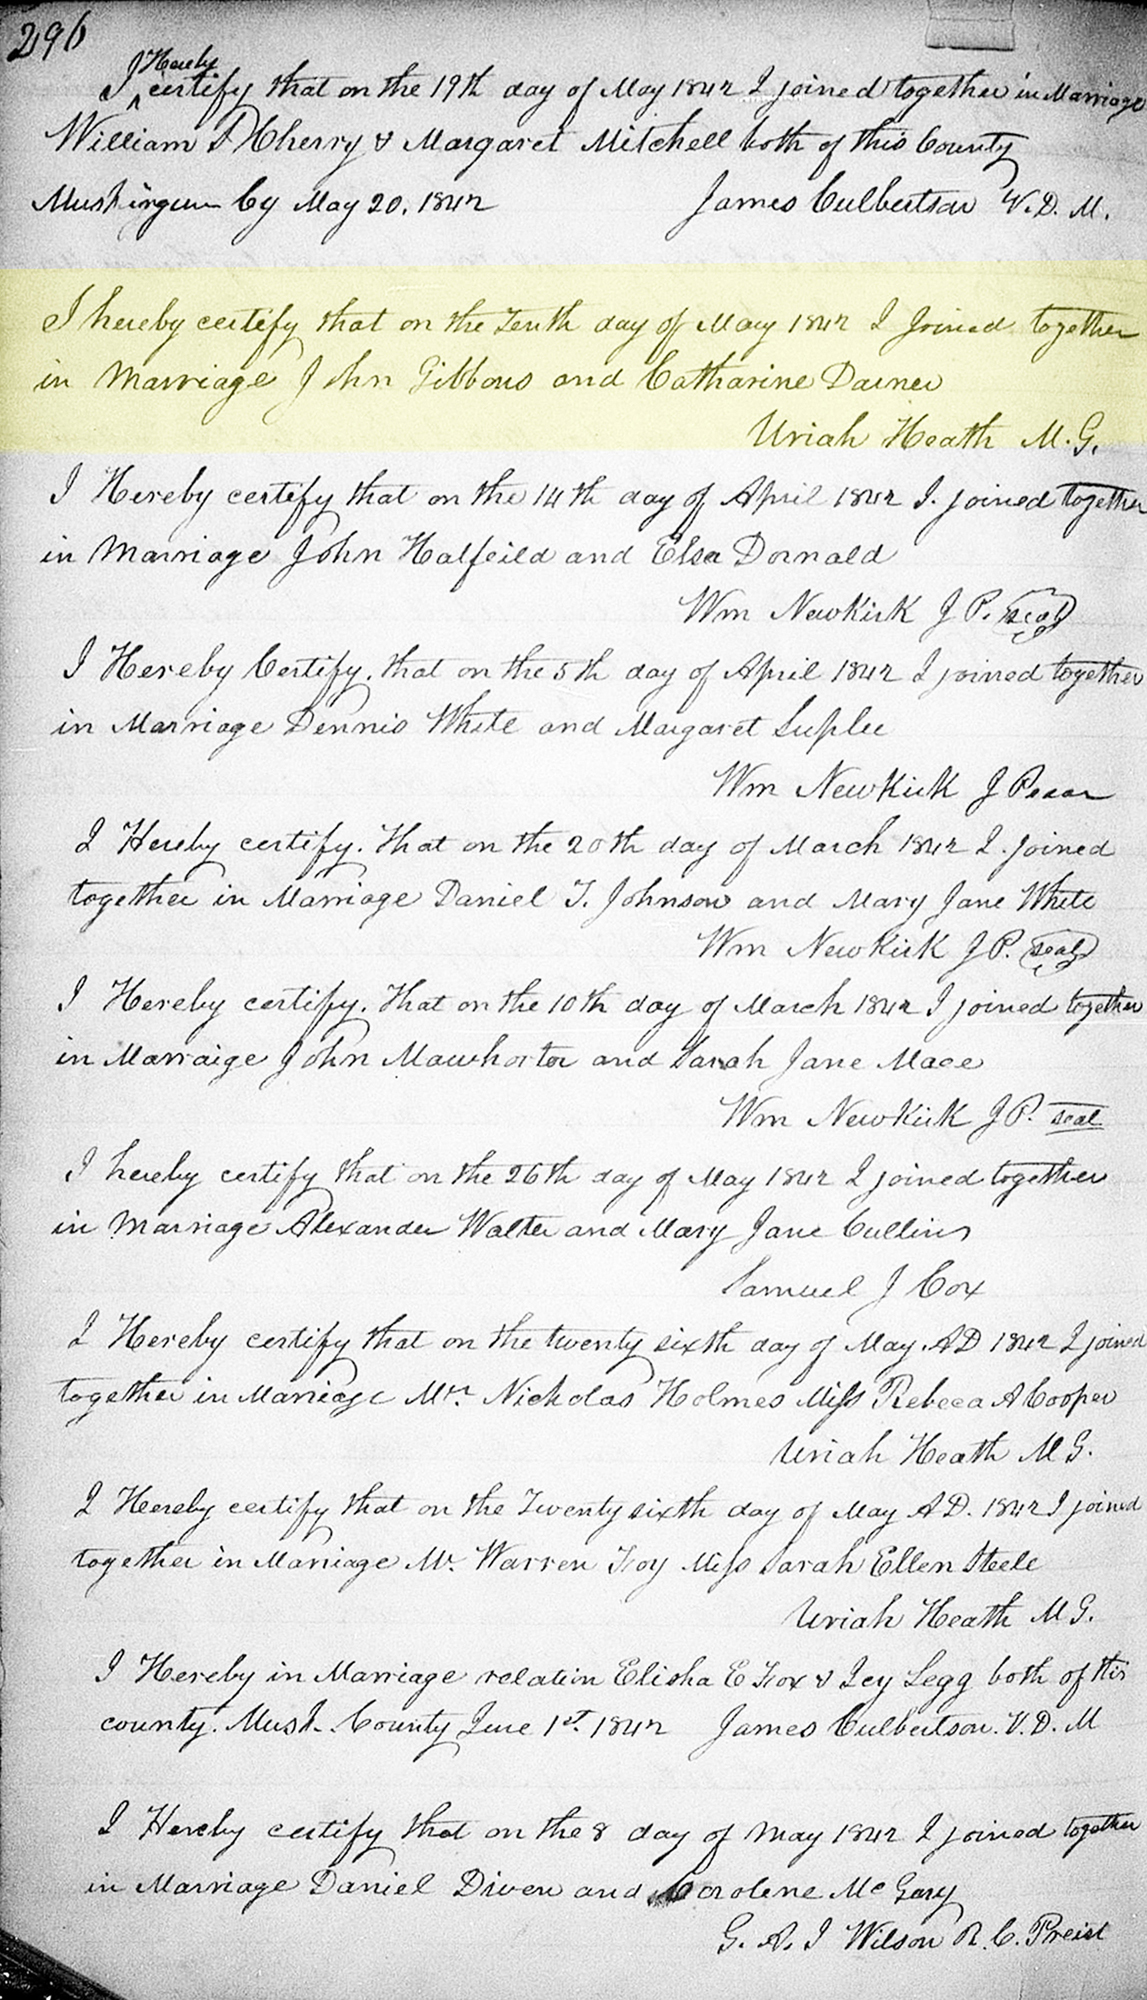 296
I Hereby certify that on the 19th day of May 1842 I joined together in Marriage
William P Cherry & Margaret Mitchell both of this County
Muskingum Cy May 20, 1842 James Culbertson V. D. M.
I hereby certify that on the Tenth day of May 1842 I Joined together
in Marriage John Gibbons and Catharine Darner
Uriah Heath M. G.
I Hereby certify that on the 14th day of April 1842 I. joined together
in Marriage John Halfeild and Elsa Dornald
Wm Newkirk J P. seal
I Hereby Certify. that on the 5th day of April 1842 I joined together
in Marriage Dennis White and Margaret Suplee
Wm Newkirk J
I Hereby certify. That on the 20th day of March 1842 I. joined
together in Marriage Daniel T. Johnson and Mary Jane White
Wm Newkirk J P. seal
I Hereby certify. That on the 10th day of March 1842 I joined together
in Marraige John Mawhorter and Sarah Jane Mace
Wm Newkirk J P. seal
I hereby certify that on the 26th day of May 1842 I joined together
in Marriage Alexander Walter and Mary Jane Cullins
Samuel J Cox
I Hereby certify that on the twenty sixth day of May. AD 1842 I joined
together in Marriage Mr. Nickolas Holmes Miss Rebeca A Cooper
Uriah Heath M G.
I Hereby certify that on the Twenty sixth day of May A D. 1842 I joined
together in Marriage Mr. Warren Foy Miss Sarah Ellen Steele
Uriah Heath M G.
I Hereby in Marriage relation Elisha E Fox & Icy Legg both of this
county. Musk. County June 1st. 1842 James Culbertson. V. D. M
I Hereby certify that on the 8 day of May 1842 I joined together
in Marriage Daniel Diven and Carolene Mc Gary
G. A. J Wilson R. C. Preist